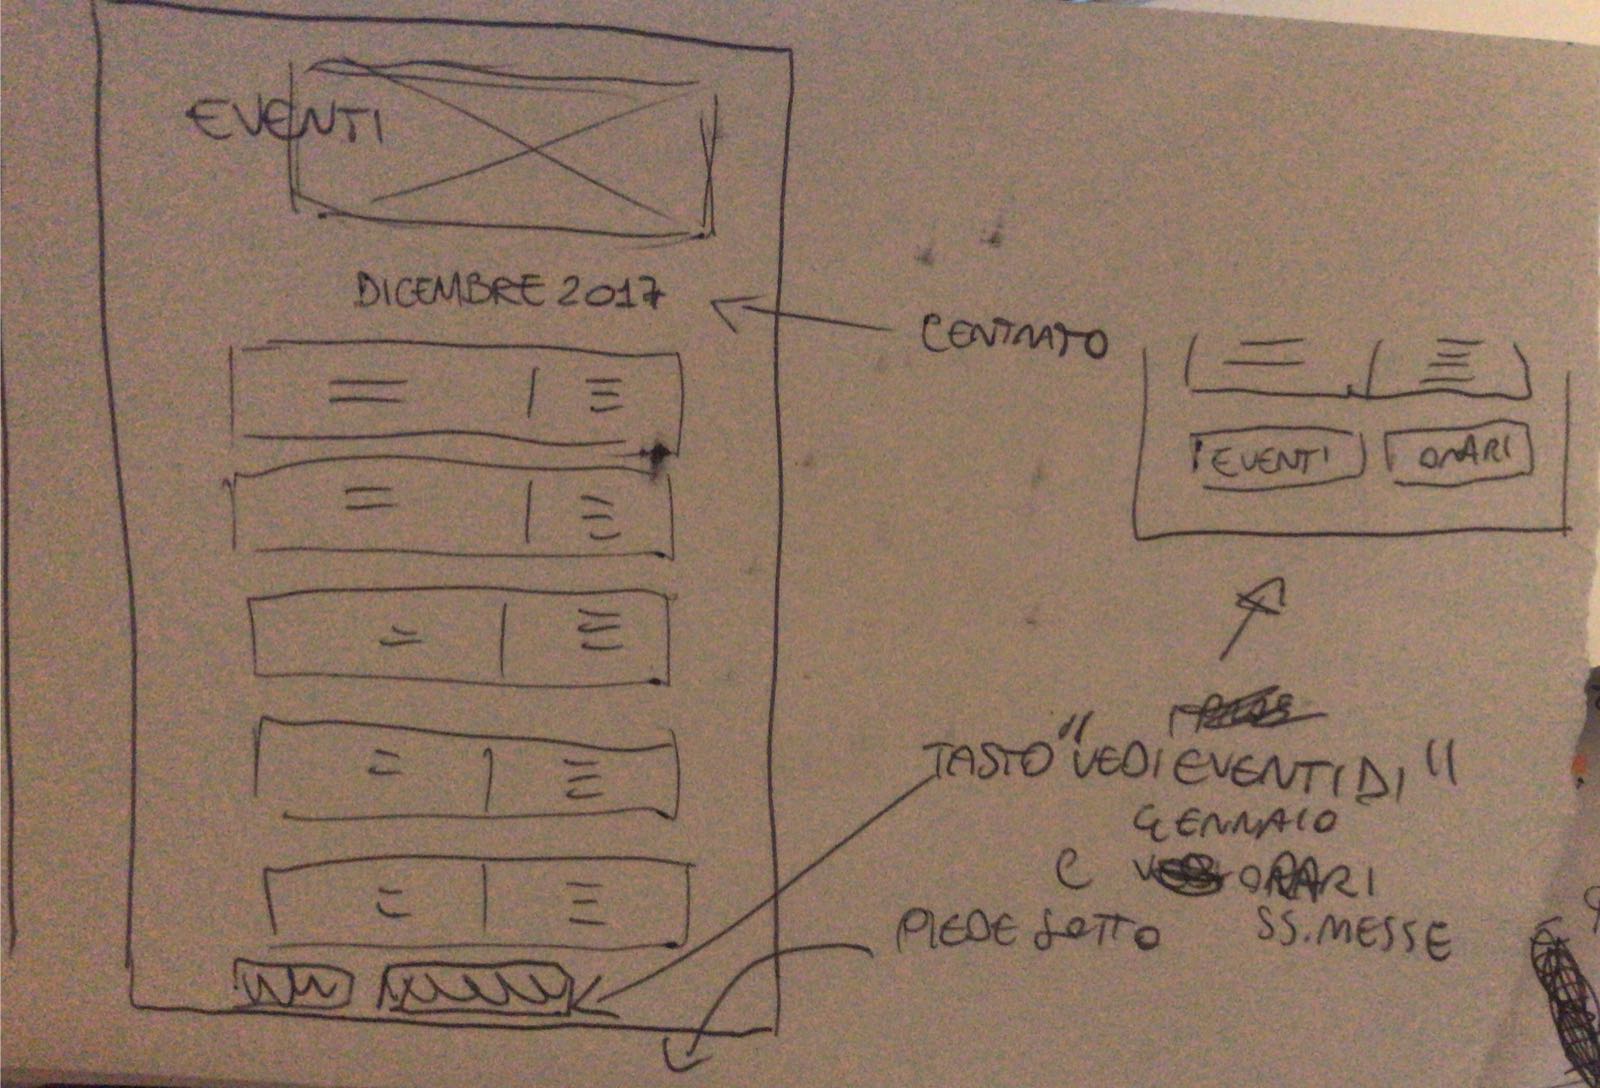 EVENTI
DICEMBRE 2017
CENTRATO
EVENTI
ORARI
TASTO "VEDI EVENTI DI"
GENNAIO
E ORARI
PIEDE SOTTO SS. MESSE